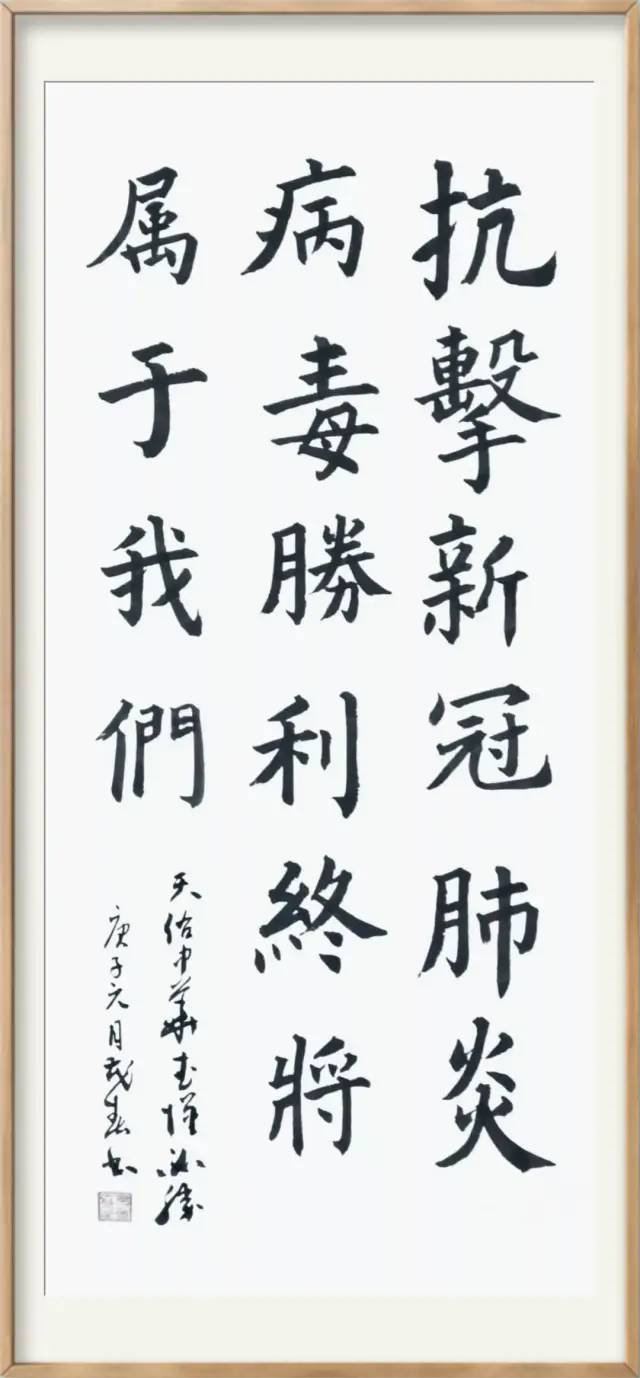 抗擊新冠肺炎
病毒勝利終將
属于我們
天佑中華武漢必勝
庚子元月茂春书